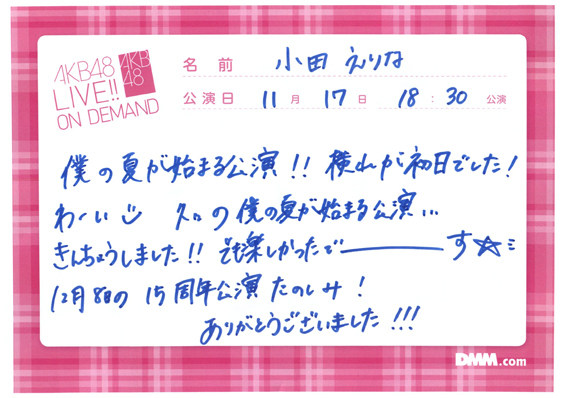 AKB48
LIVE!!
ON DEMAND
AKB
48
名前 小田 えりな
公演日 11月 17日 18:30 公演
僕の夏が始まる公演!! 横山が初日でした!
わーい 久々の僕の夏が始まる公演...
きんちょうしました!! でも楽しかったで――――す☆ミ
12月8日の 15周年公演 たのしみ!
ありがとうございました!!!
DMM.com